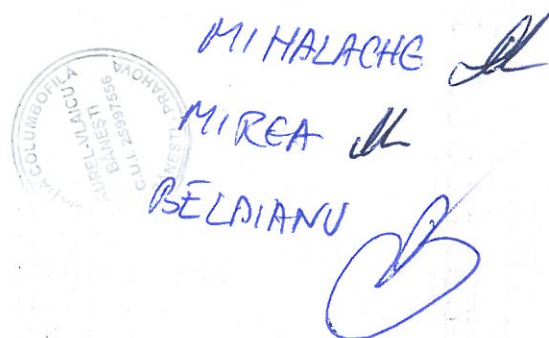 MIHALACHE
MIREA
BELDIANU
COLUMBOFILA
AUREL-VLAICU
BANESTI
C.U.I. 25597556
PRAHOVA